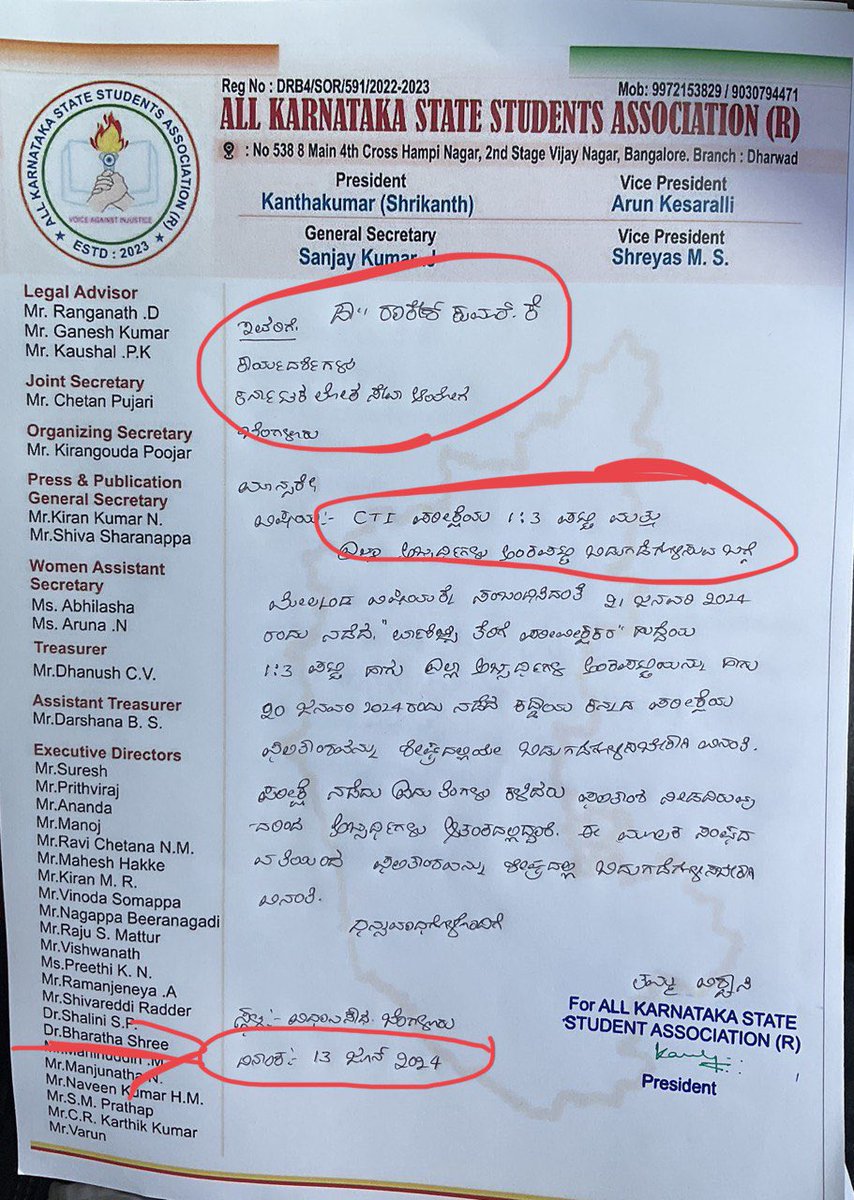 Reg No : DRB4/SOR/591/2022-2023
Mob: 9972153829 / 9030794471
ALL KARNATAKA STATE STUDENTS ASSOCIATION (R)
: No 538 8 Main 4th Cross Hampi Nagar, 2nd Stage Vijay Nagar, Bangalore. Branch : Dharwad
ALL KARNATAKA STATE STUDENTS ASSOCIATION (R)
VOICE AGAINST INJUSTICE
★ ESTD : 2023 ★
President
Kanthakumar (Shrikanth)
Vice President
Arun Kesaralli
General Secretary
Sanjay Kumar J
Vice President
Shreyas M. S.
Legal Advisor
Mr. Ranganath .D
Mr. Ganesh Kumar
Mr. Kaushal .P.K
Joint Secretary
Mr. Chetan Pujari
Organizing Secretary
Mr. Kirangouda Poojar
Press & Publication
General Secretary
Mr.Kiran Kumar N.
Mr.Shiva Sharanappa
Women Assistant
Secretary
Ms. Abhilasha
Ms. Aruna .N
Treasurer
Mr.Dhanush C.V.
Assistant Treasurer
Mr.Darshana B. S.
Executive Directors
Mr.Suresh
Mr.Prithviraj
Mr.Ananda
Mr.Manoj
Mr.Ravi Chetana N.M.
Mr.Mahesh Hakke
Mr.Kiran M. R.
Mr.Vinoda Somappa
Mr.Nagappa Beeranagadi
Mr.Raju S. Mattur
Mr.Vishwanath
Ms.Preethi K. N.
Mr.Ramanjeneya .A
Mr.Shivareddi Radder
Dr.Shalini S.P.
Dr.Bharatha Shree
Mr.Mahinuddin .M
Mr.Manjunatha N.
Mr.Naveen Kumar H.M.
Mr.S.M. Prathap
Mr.C.R. Karthik Kumar
Mr.Varun
ಇವರಿಗೆ, ಡಾ|| ರಾಕೇಶ್ ಕುಮಾರ್. ಕೆ
ಕಾರ್ಯದರ್ಶಿಗಳು
ಕರ್ನಾಟಕ ಲೋಕ ಸೇವಾ ಆಯೋಗ
ಬೆಂಗಳೂರು
ಮಾನ್ಯರೇ,
ವಿಷಯ:- CTI ಪರೀಕ್ಷೆಯ 1:3 ಪಟ್ಟಿ ಮತ್ತು
ಎಲ್ಲಾ ಅಭ್ಯರ್ಥಿಗಳು ಅಂಕಪಟ್ಟಿ ಬಿಡುಗಡೆಗೊಳಿಸುವ ಬಗ್ಗೆ
ಮೇಲ್ಕಂಡ ವಿಷಯಕ್ಕೆ ಸಂಬಂಧಿಸಿದಂತೆ 21 ಜನವರಿ 2024
ರಂದು ನಡೆದ "ವಾಣಿಜ್ಯ ತೆರಿಗೆ ಪರಿವೀಕ್ಷಕರ" ಹುದ್ದೆಯ
1:3 ಪಟ್ಟಿ ಹಾಗು ಎಲ್ಲಾ ಅಭ್ಯರ್ಥಿಗಳ ಅಂಕಪಟ್ಟಿಯನ್ನು ಹಾಗು
20 ಜನವರಿ 2024 ರಂದು ನಡೆದ ಕಡ್ಡಾಯ ಕನ್ನಡ ಪರೀಕ್ಷೆಯ
ಫಲಿತಾಂಶವನ್ನು ಶೀಘ್ರದಲ್ಲಿಯೇ ಬಿಡುಗಡೆಗೊಳಿಸಬೇಕಾಗಿ ವಿನಂತಿ.
ಪರೀಕ್ಷೆ ನಡೆದು ಐದು ತಿಂಗಳು ಕಳೆದರು ಫಲಿತಾಂಶ ನೀಡದಿರುವು
ದರಿಂದ ಅಭ್ಯರ್ಥಿಗಳು ಆತಂಕದಲ್ಲಿದ್ದಾರೆ. ಈ ಮೂಲಕ ಸಂಘದ
ವತಿಯಿಂದ ಫಲಿತಾಂಶವನ್ನು ಶೀಘ್ರದಲ್ಲಿ ಬಿಡುಗಡೆಗೊಳಿಸಬೇಕಾಗಿ
ವಿನಂತಿ.
ಧನ್ಯವಾದಗಳೊಂದಿಗೆ
ತಮ್ಮ ವಿಶ್ವಾಸಿ
ಸ್ಥಳ:- ವಿಧಾನ ಸೌಧ ಬೆಂಗಳೂರು
ದಿನಾಂಕ:- 13 ಜೂನ್ 2024
For ALL KARNATAKA STATE
STUDENT ASSOCIATION (R)
President